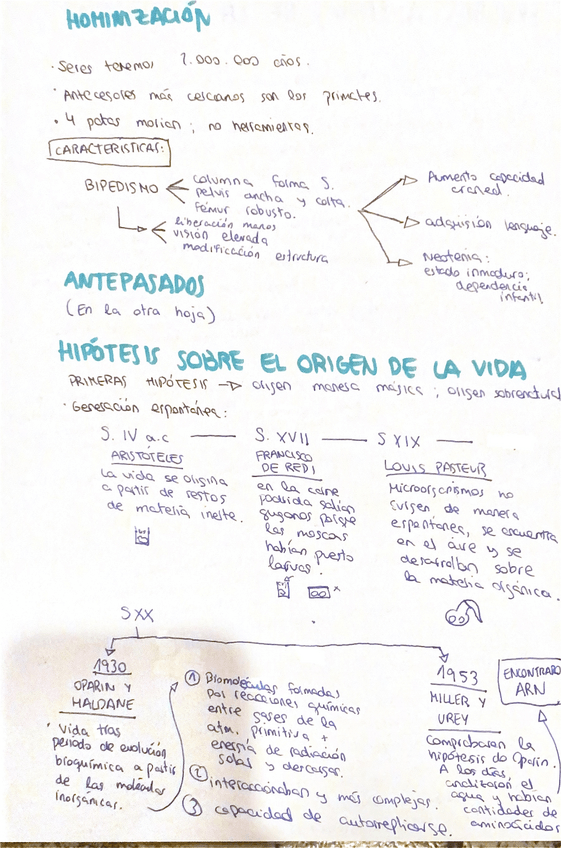 HOMINIZACIÓN
· Seres tenemos 2.000.000 años.
· Antecesores más cercanos son los primates.
· 4 patas morían ; no herramientas.
CARACTERISTICAS:
BIPEDISMO
columna forma S.
pelvis ancha y corta.
Fémur robusto.
liberación manos
visión elevada
modificación estructura
Aumento capacidad
craneal.
adquisión lenguaje.
Neotenia:
estado inmaduro;
dependencia
infantil
ANTEPASADOS
(En la otra hoja)
HIPÓTESIS SOBRE EL ORIGEN DE LA VIDA
PRIMERAS HIPÓTESIS → origen manera mágica ; origen sobrenatural
· Generación espontánea:
S. IV a.c — S. XVII — S XIX —
ARISTÓTELES
La vida se origina
a partir de restos
de materia inerte.
FRANCISCO
DE REDI
en la carne
podrida salían
gusanos porque
las moscas
habían puesto
larvas.
LOUIS PASTEUR
Microorganismos no
surgen de manera
espontánea, se encuentra
en el aire y se
desarrollan sobre
la materia orgánica.
SXX
1930
OPARIN Y
HALDANE
· Vida tras
periodo de evolución
bioquímica a partir
de las moléculas
inorgánicas.
① Biomoléculas formadas
por reacciones químicas
entre gases de la
atm. primitiva +
energía de radiación
solar y descargas.
② interaccionaban y más complejas.
③ capacidad de autorreplicarse.
1953
MILLER Y
UREY
Comprobaron la
hipótesis de Oparin.
A los días,
analizaron el
agua y habían
cantidades de
aminoácidos
ENCONTRARO
ARN